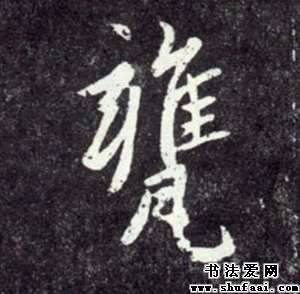 甕
书法爱网
www.shufaai.com